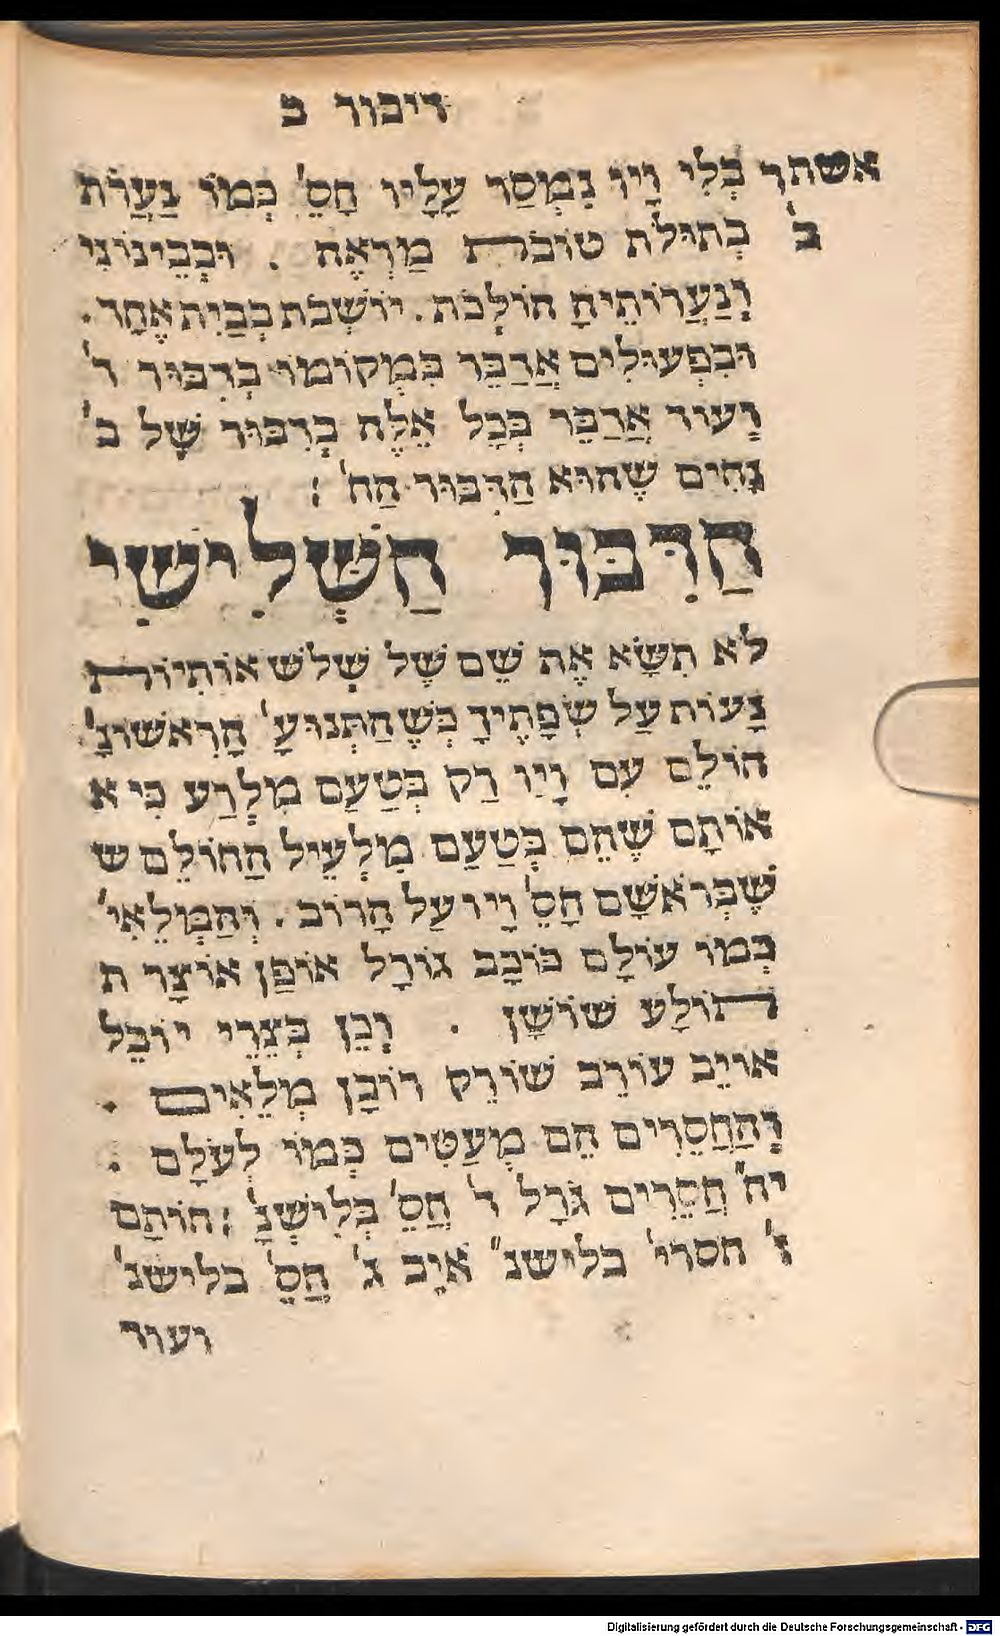 דיבור ב
אשתך בְּלִי וָיו נִמְסַר עָלָיו חָסֵ' כְּמוֹ נַעֲרֹת
ב' בְּתוּלֹת טוֹבֹת מַרְאֶה . וּבְבֵינוֹנִי
וְנַעֲרוֹתֶיהָ הוֹלְכֹת . יוֹשֶׁבֶת בְּבַיִת אֶחָד .
וּבִפְעוּלִים אֲדַבֵּר בִּמְקוֹמוֹ בְּדִבּוּר ד'
וְעוֹד אֲדַבֵּר בְּכָל אֵלֶּה בְּדִבּוּר שֶׁל ב'
נָחִים שֶׁהוּא הַדִּבּוּר הַח' :
הַדִּבּוּר הַשְּׁלִישִׁי
לֹא תִשָּׂא אֶת שֵׁם שֶׁל שְׁלֹשׁ אוֹתִיּוֹת
נָעוֹת עַל שְׂפָתֶיךָ כְּשֶׁהַתְּנוּעָ' הָרִאשׁוֹנָ'
הוֹלֵם עִם וָיו רַק בְּטַעַם מִלְּרַע כִּי א
אוֹתָם שֶׁהֵם בְּטַעַם מִלְּעֵיל הַחוֹלֵם ש
שֶׁבְּרֹאשָׁם חָסֵ' וָיו עַל הָרוֹב . וְהַמְּלֵאִי'
כְּמוֹ עוֹלָם כּוֹכָב גּוֹרָל אוֹפַן אוֹצָר ת
תוֹלָע שׁוֹשָׁן . וְכֵן בְּצֵרֵי יוֹבֵל
אוֹיֵב עוֹרֵב שׂוֹרֵק רוֹבָן מְלֵאִים .
וְהַחֲסֵרִים הֵם מְעַטִּים כְּמוֹ לְעֹלָם .
יח" חֲסֵרִים גֹּרָל ד' חֲסֵ' בְּלִישְׁנָ' : חוֹתָם
ז' חסרי' בלישנ" אֹיֵב ג' חֲסֵ' בלישנ'
ועוד
Digitalisierung gefördert durch die Deutsche Forschungsgemeinschaft - DFG